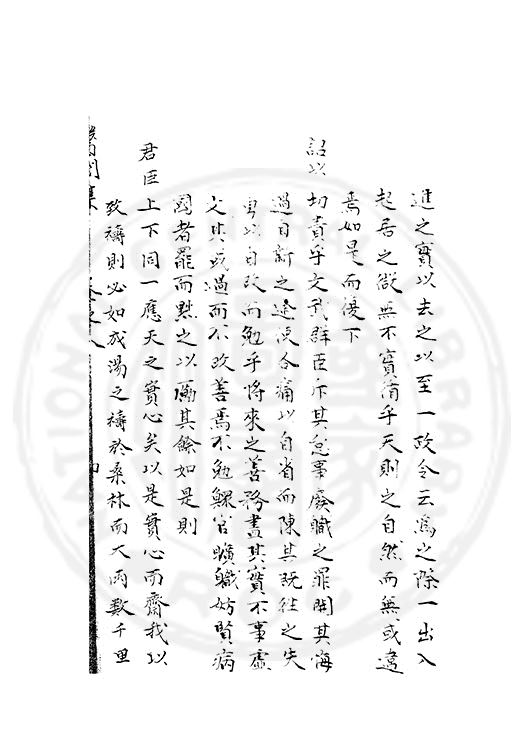 進之實以去之以至一政令云爲之際一出入
起居之微無不實循乎天則之自然而無或違
焉如是而後下
詔以切責乎文武群臣斥其怠事廢職之罪開其悔
過自新之途使各痛以自省而陳其既往之失
以自改而勉乎將來之善務盡其實不事虛
文其或過而不改善焉不勉鰥官曠職妨賢病
國者罷而黜之以勵其餘如是則
君臣上下同一應天之實心矣以是實心而齋我以
致禱則必如成湯之禱於桑林而大雨數千里